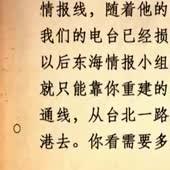 情报线，随着他的
我们的电台已经损
以后东海情报小组
就只能靠你重建的
通线，从台北一路
港去。你看需要多